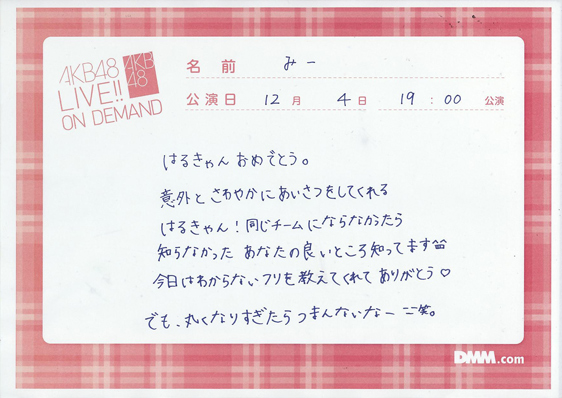 AKB48
LIVE!!
ON DEMAND
AKB
48
名前 みー
公演日 12月 4日 19:00 公演
はるきゃん おめでとう。
意外と さわやかにあいさつをしてくれる
はるきゃん!同じチームにならなかったら
知らなかった あなたの良いところ知ってます
今日はわからないフリを教えてくれて ありがとう♡
でも、丸くなりすぎたら つまんないなー 笑。
DMM.com